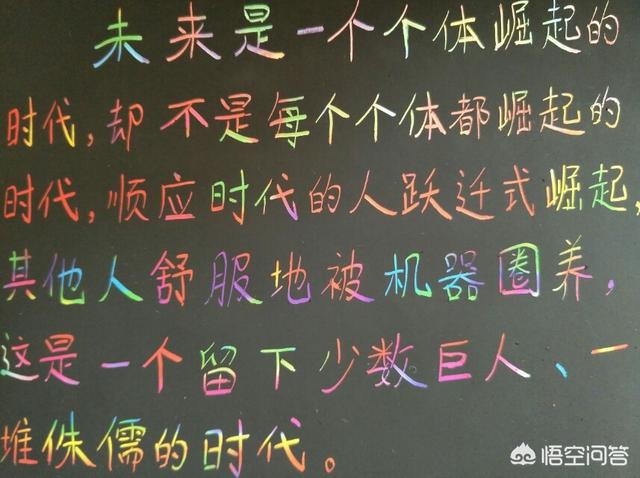 未来是一个个体崛起的
时代,却不是每个个体都崛起的
时代,顺应时代的人跃迁式崛起,
其他人舒服地被机器圈养,
这是一个留下少数巨人、一
堆侏儒的时代。
悟空问答